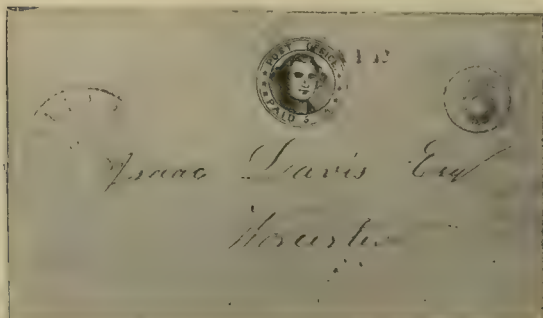 POST OFFICE
PAID 5
Isaac Davis Esq
Worcester